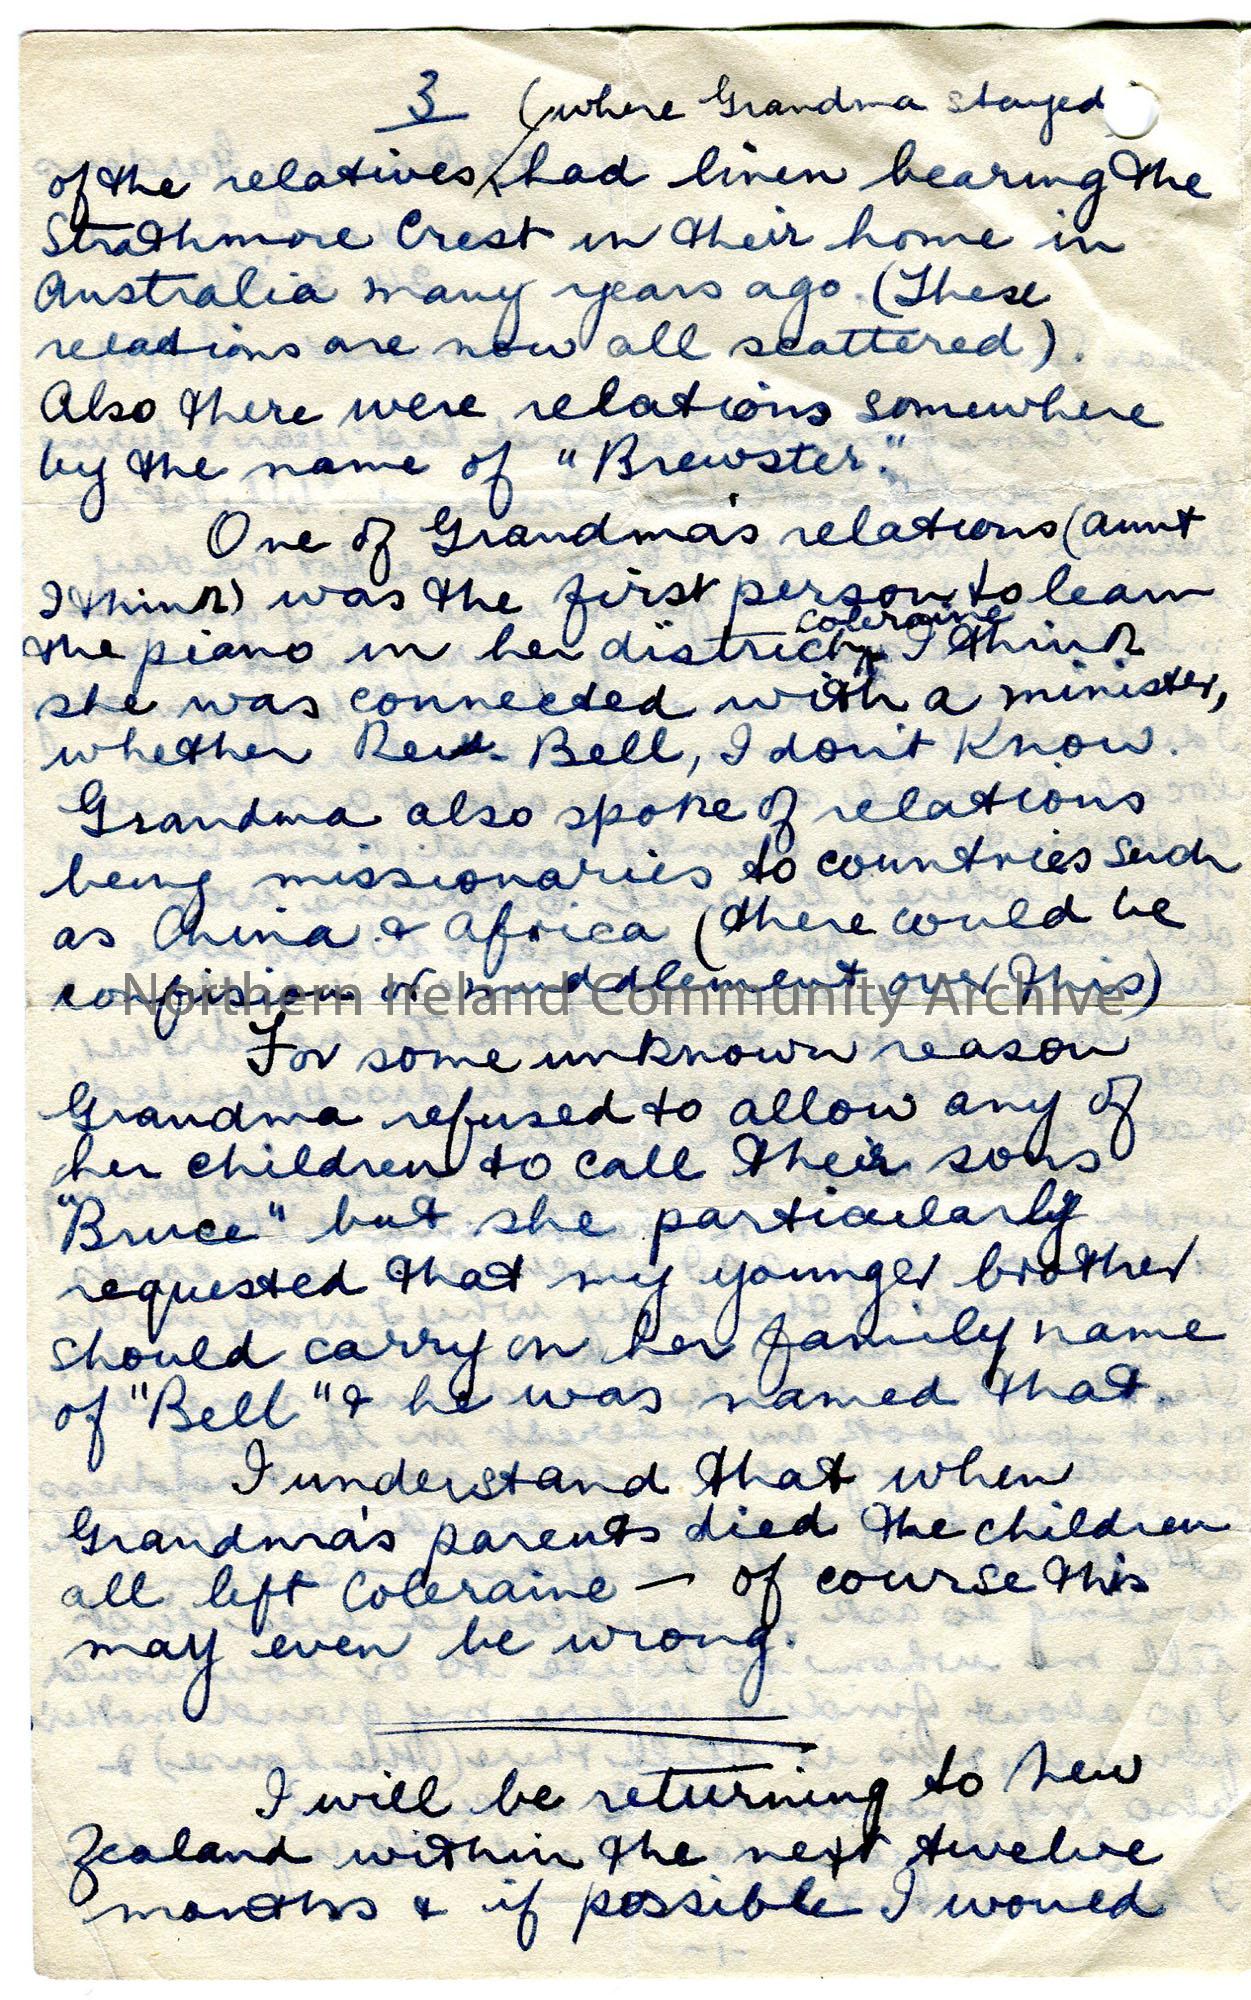 3 (where Grandma stayed)
of the relatives, had linen bearing the
Strathmore Crest in their home in
Australia many years ago. (These
relations are now all scattered).
Also there were relations somewhere
by the name of "Brewster."
One of Grandma's relations (aunt
I think) was the first person to learn
coleraine
the piano in her district, I think
she was connected with a minister,
whether Rev. Bell, I don't know.
Grandma also spoke of relations
being missionaries to countries such
as China & Africa (there could be
confusion or muddlement over this)
Northern Ireland Community Archive
For some unknown reason
Grandma refused to allow any of
her children to call their sons
"Bruce" but she particularly
requested that my younger brother
should carry on her family name
of "Bell" & he was named that.
I understand that when
Grandma's parents died the children
all left Coleraine — of course this
may even be wrong.
I will be returning to New
Zealand within the next twelve
months & if possible I would